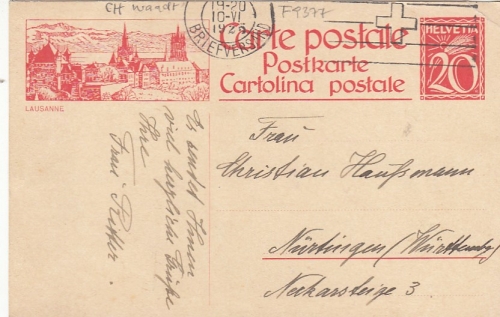 CH Waadt
F9377
19-20
10.VI
1926
BRIEFVERS
Carte postale
Postkarte
Cartolina postale
HELVETIA
20
LAUSANNE
Frau
Christian Haußmann
Nürtingen (Württembg)
Neckarsteige 3
Es sendet Ihnen
viel herzliche Grüße
Ihre
Frau